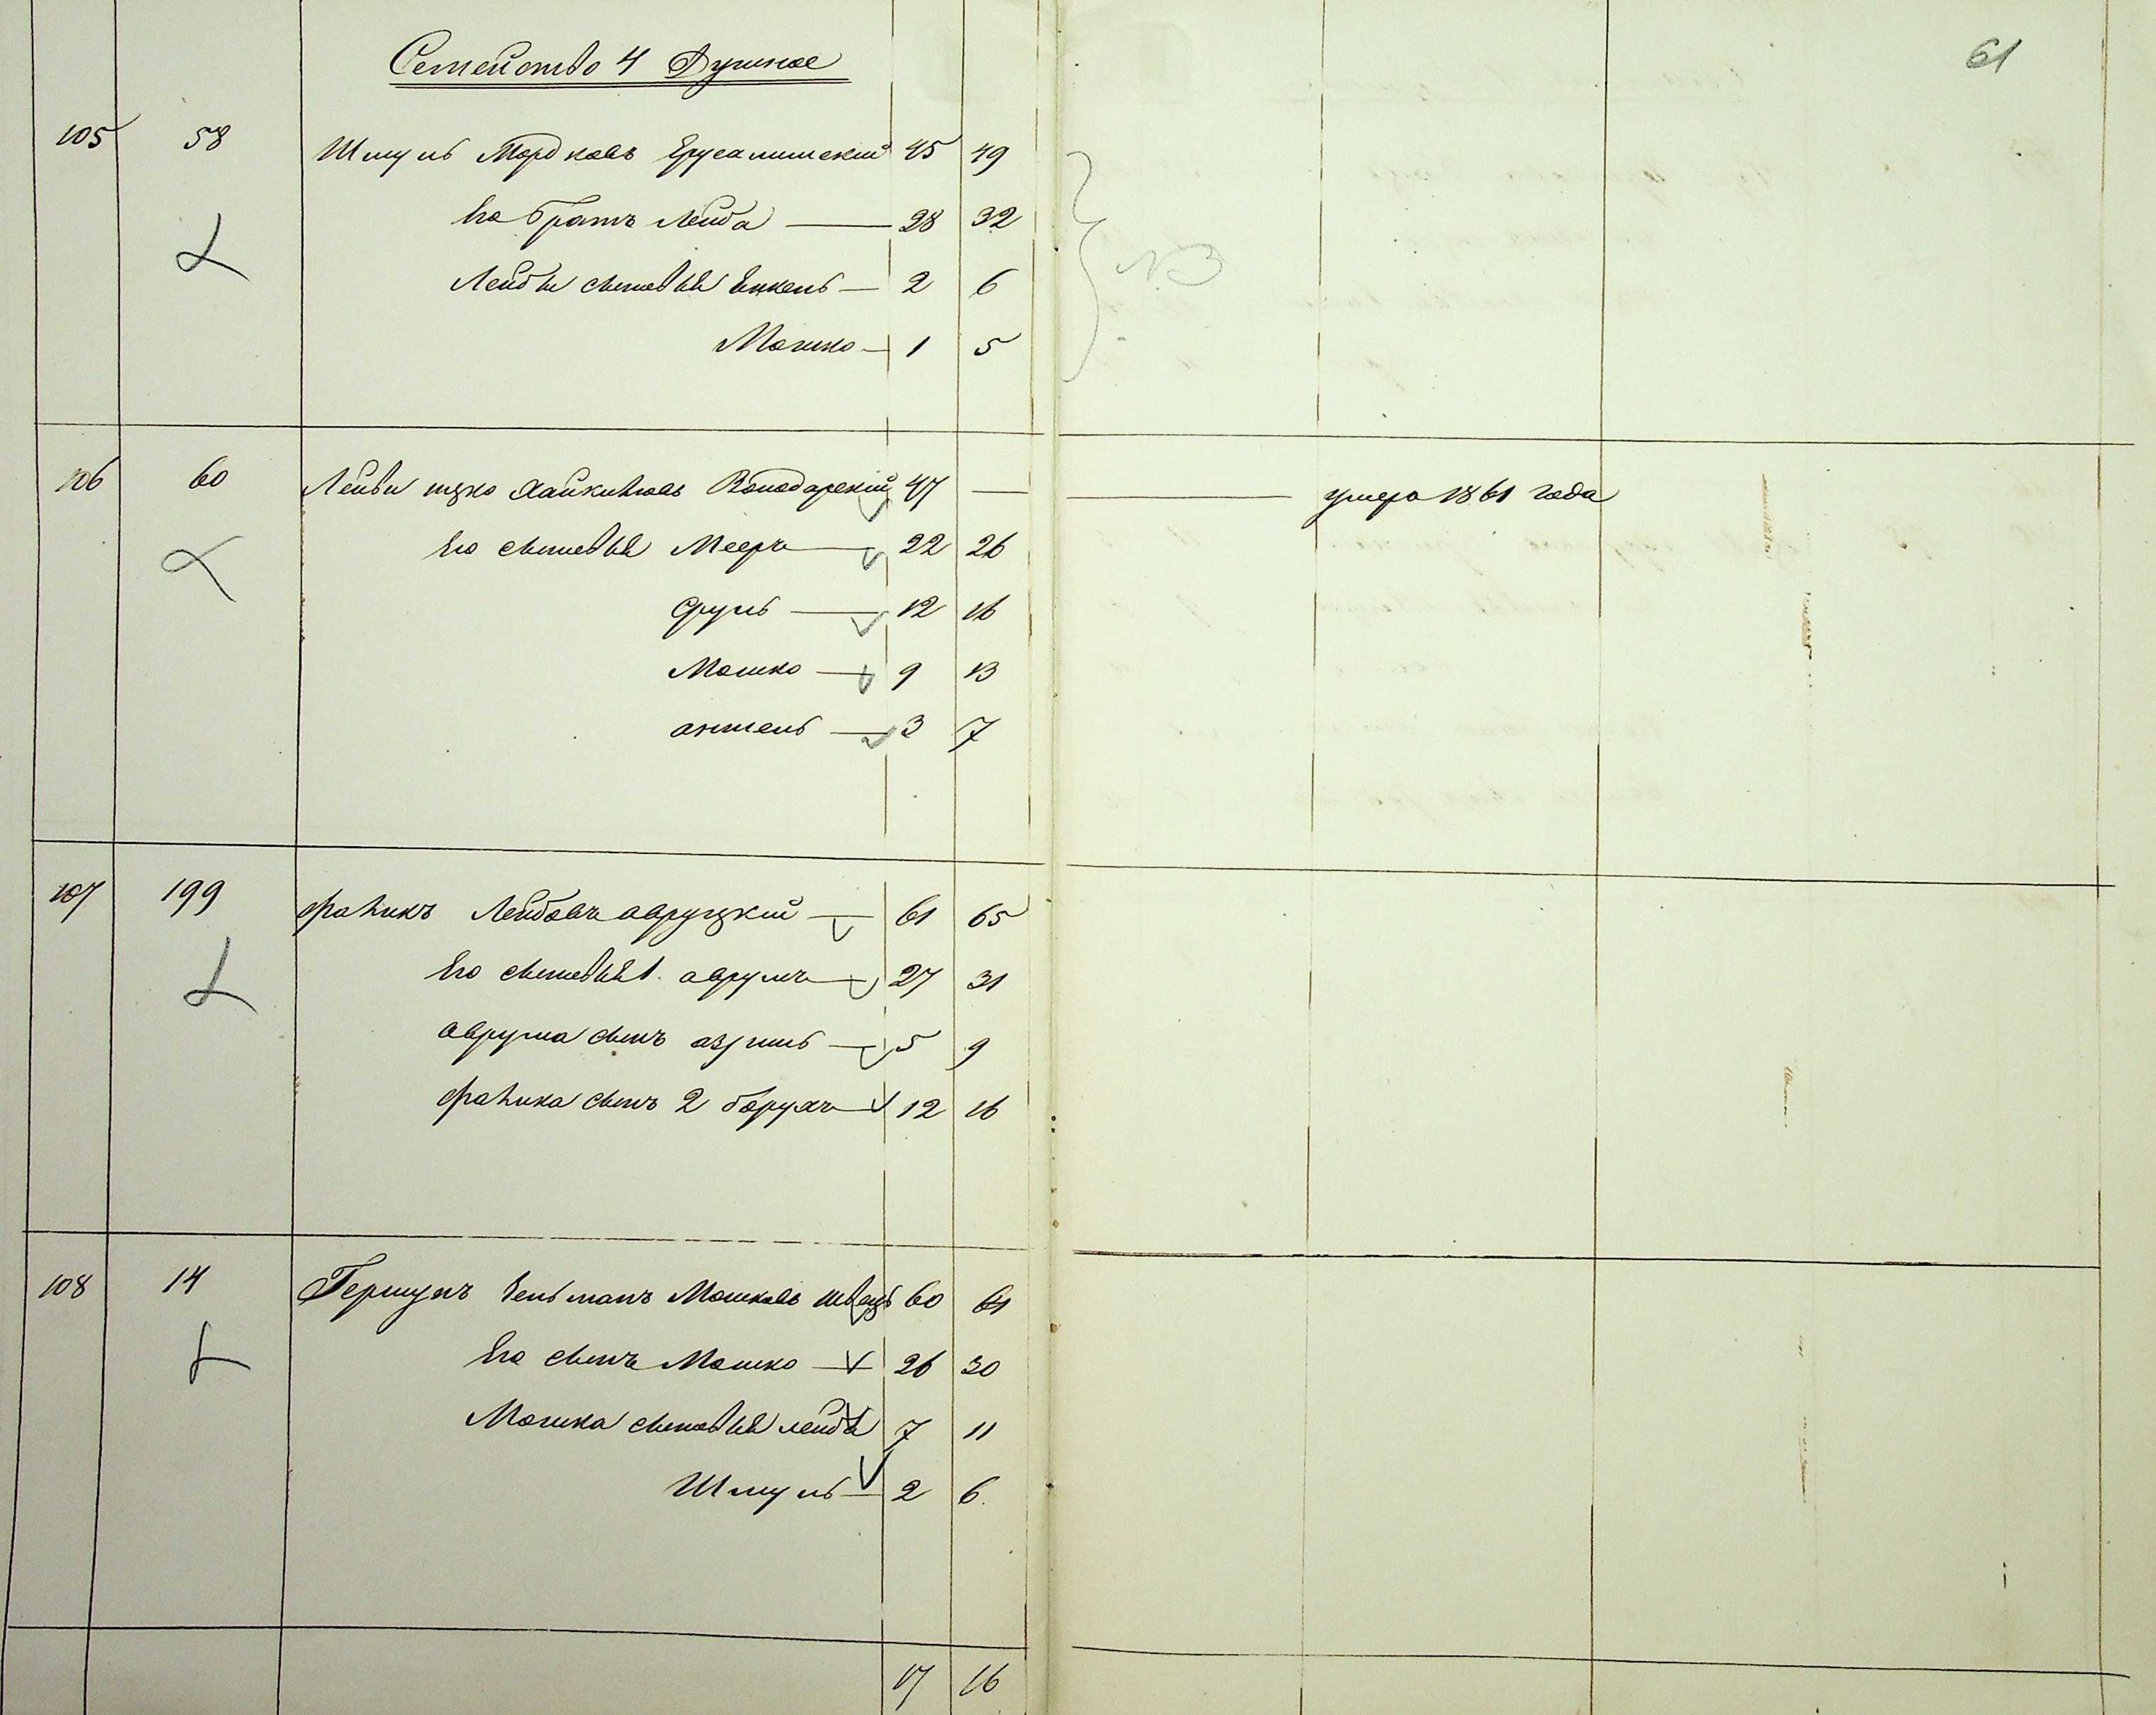 61
Семейство 4 Душное
105 58 Шмуль Мордковъ Ерусалимский 45 49
Его братъ Лейба 28 32
Лейбы сыновья Енкель 2 6
Мошко 1 5
NB
106 60 Лейви ицко Хайкинювъ Володарский 47 — умеръ 1861 года
Его сыновья Мееръ 22 26
Сруль 12 16
Мошко 9 13
аншель 3 7
107 199 фаЋикъ Лейбовъ авруцкий 61 65
Его сыновья 1. аврумъ 27 31
аврума сынъ азриль 5 9
сынъ 2 борухъ 12 16
108 14 Гершунъ Зельманъ Мошковъ швецъ 60 64
Его сынъ Мошко 26 30
Мошка сыновья лейба 7 11
Шмуль 2 6.
17 16